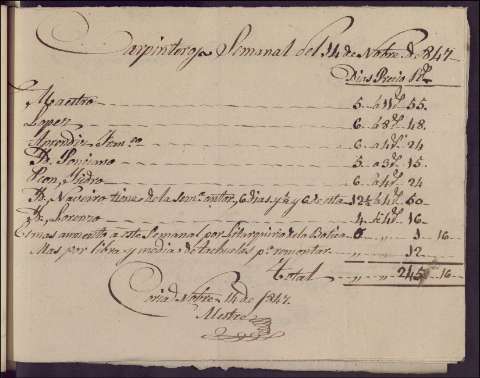 Carpinteros Semanal del 14 de Nobre de 847
Dias Precio Rs
Maestro 5 a 11 rs 55
Lopez 6 a 8 rs 48
Aprendiz 6 a 4 rs 24
Ponciano 5 a 3 rs 15
Peon, Isidro 6 a 4 rs 24
Naveiro tiene de la semª anter, 6 dias y ½ y 6 de esta 12½ a 4 rs 50
Lorenzo 4 a 4 rs 16
aumento a este Semanal por de la Botica 1 16
Mas por libra y media de tachuelas pª remontar 12
Total 245 16
Coria Nobre 14 de 1847
Mestre